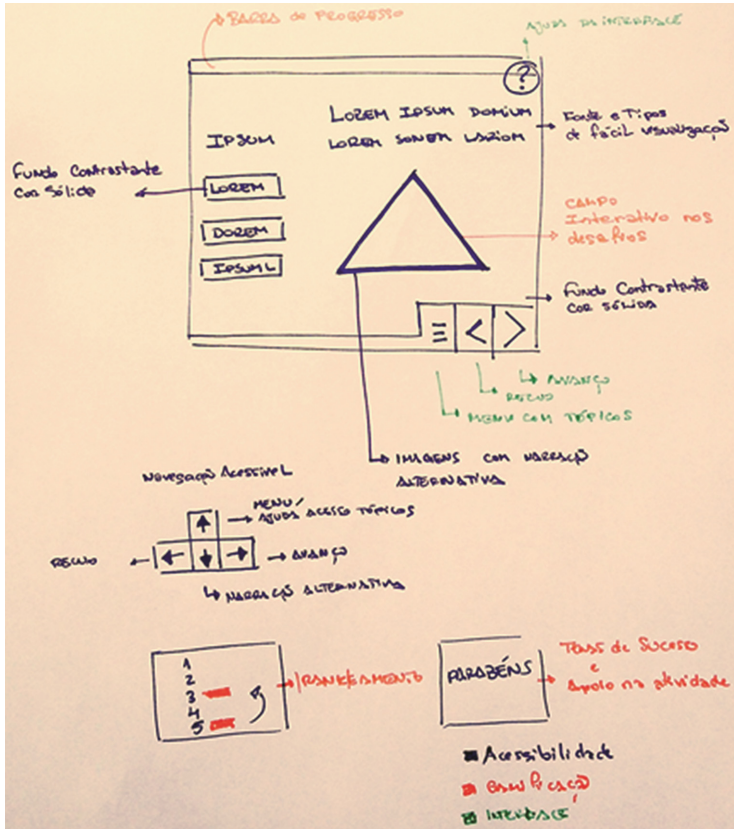 BARRA de PROGRESSO
AJUDA DA INTERFACE
?
LOREM IPSUM DOMIUM
LOREM SONEM LARIOM
IPSUM
Fonte e Tipos
de fácil visualização
Fundo Contrastante
Cor Sólida
LOREM
DOREM
IPSUML
CAMPO
Interativo nos
desafios
Fundo Contrastante
COR SÓLIDA
AVANÇO
RECUO
MENU COM TÓPICOS
IMAGENS COM NARRAÇÃO
ALTERNATIVA
Navegação Acessível
MENU/
AJUDA ACESSO TÓPICOS
RECUO
AVANÇO
NARRAÇÃO ALTERNATIVA
1
2
3
4
5
RANKEAMENTO
PARABÉNS
Telas de Sucesso
e
Apoio na atividade
Acessibilidade
Gamificação
INTERFACE